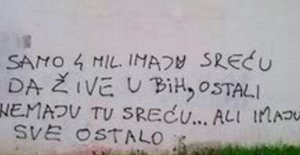 SAMO 4 MIL. IMAJU SREĆU
DA ŽIVE U BiH, OSTALI
NEMAJU TU SREĆU... ALI IMAJU
SVE OSTALO